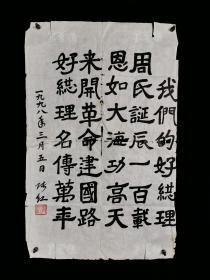 我們的好總理
周氏誕辰一百載
恩如大海功高天
来開革命建國路
好總理名傳萬年
一九九八年三月五日